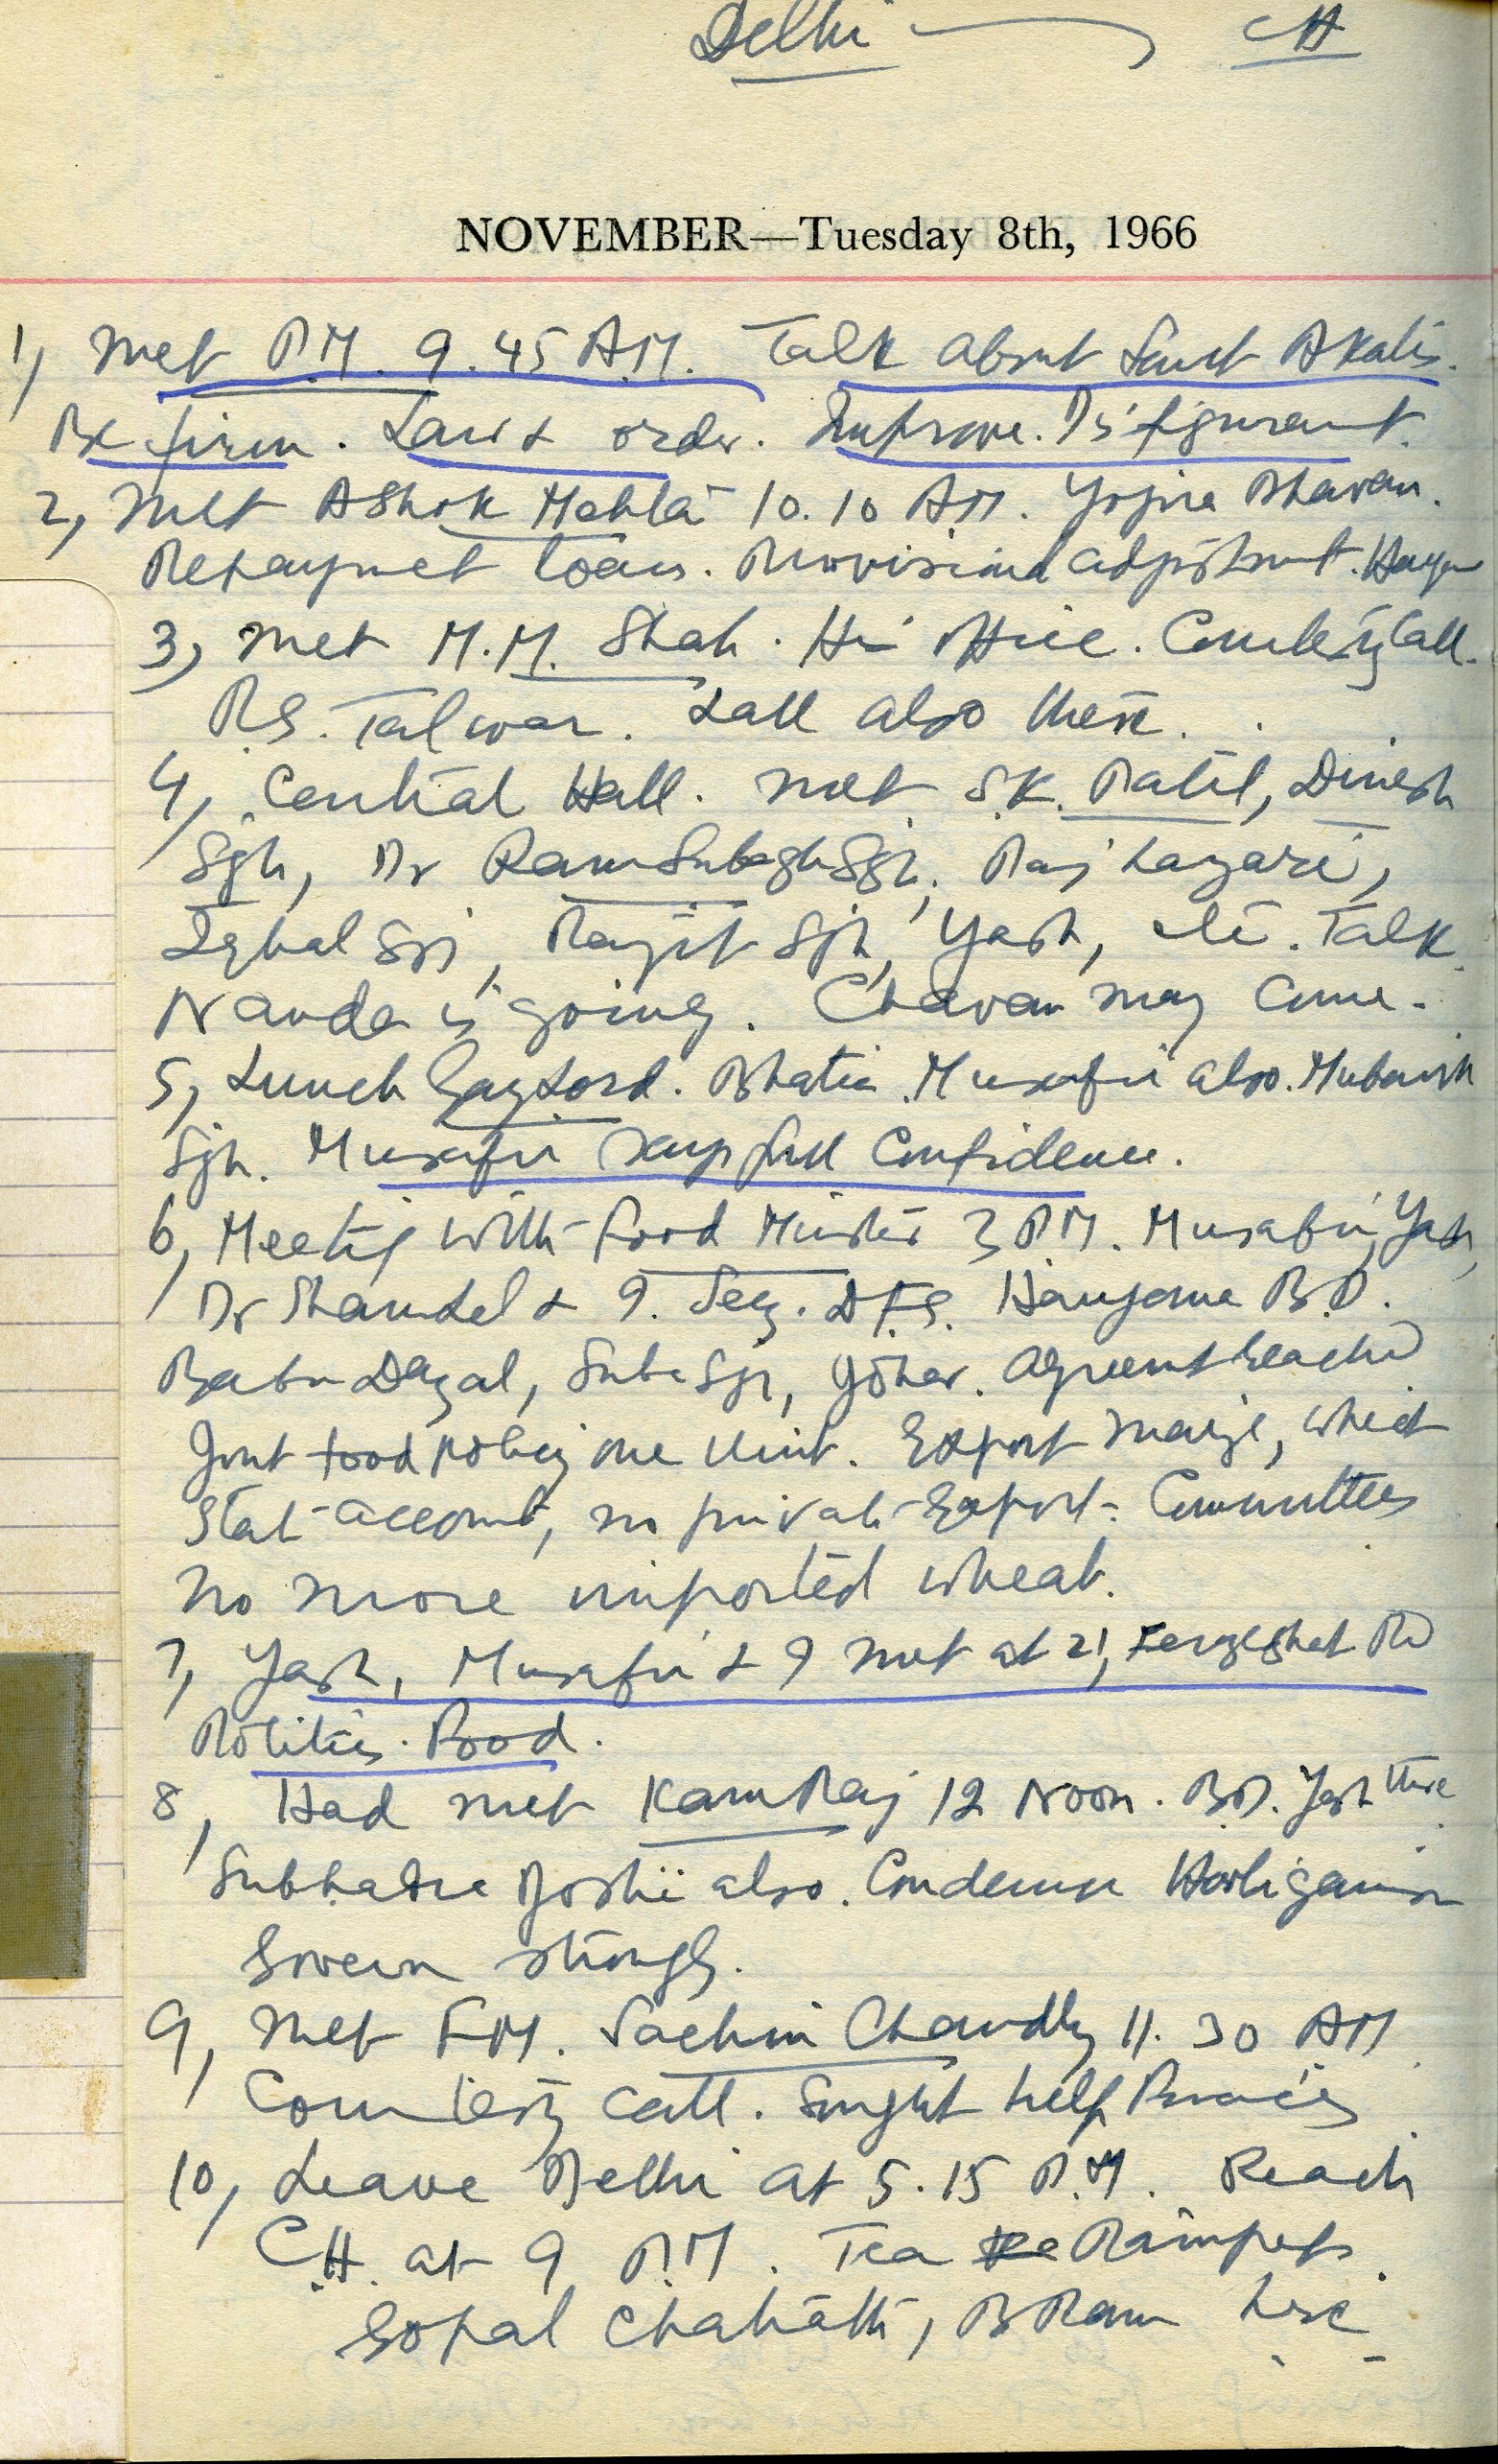 Delhi — CH
NOVEMBER—Tuesday 8th, 1966
1, Met P.M. 9.45 A.M. Talk about Sant Akalis.
Be firm. Law & order. Improve.
2, Met Ashok Mehta 10.10 AM. Yojna Bhavan.
Repaymet loan. Provisional adjustment.
3, Met M.M. Shah. His Office. Courtesy Call.
P.S. Talwar. Lall also there.
4, Central Hall. Met S.K. Patil, Dinesh
Sgh, Dr Ram Subagh Sgh,
Iqbal Sgh, Sgh, Yash, etc. Talk
Nanda is going. Chavan may come.
5, Lunch Gaylord. Bhatia Musafir also.
Sgh. Musafir says full Confidence.
6, Meeting with Food Minister 3 P.M. Musafir, Yash,
Dr & I. Secy. D.F.S. Haryana B.D.
Babu Dayal, Agreemt reached
Joint food policy one Unit. Export maize, wheat
State account, no private Export. Committees
No more imported wheat.
7, Yash, Musafir & I met at 21, Ferozeshah Rd
Politics. Food.
8, Had met KamRaj 12 Noon. B.D. Yash there
Subhadra Joshi also. Condemn Hooliganism
Govern strongly.
9, Met F.M. Sachin Chaudhy 11.30 AM
Courtesy call. Sought help
10, Leave Delhi at 5.15 P.M. Reach
C.H. at 9 P.M. Tea
Gopal B Ram here